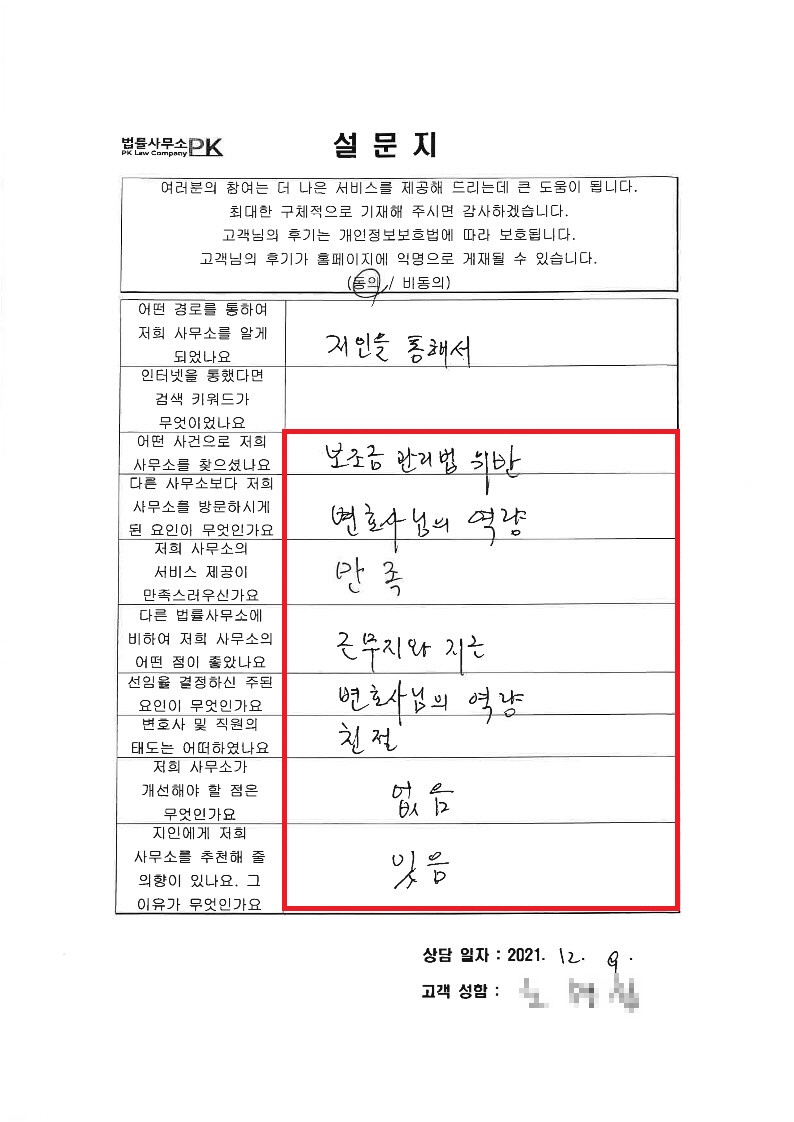 법률사무소PK
PK Law Company
설 문 지
여러분의 참여는 더 나은 서비스를 제공해 드리는데 큰 도움이 됩니다.
최대한 구체적으로 기재해 주시면 감사하겠습니다.
고객님의 후기는 개인정보보호법에 따라 보호됩니다.
고객님의 후기가 홈페이지에 익명으로 게재될 수 있습니다.
(동의 / 비동의)
어떤 경로를 통하여
저희 사무소를 알게
되었나요
지인을 통해서
인터넷을 통했다면
검색 키워드가
무엇이었나요
어떤 사건으로 저희
사무소를 찾으셨나요
보조금 관리법 위반
다른 사무소보다 저희
사무소를 방문하시게
된 요인이 무엇인가요
변호사님의 역량
저희 사무소의
서비스 제공이
만족스러우신가요
만족
다른 법률사무소에
비하여 저희 사무소의
어떤 점이 좋았나요
근무지와 지근
선임을 결정하신 주된
요인이 무엇인가요
변호사님의 역량
변호사 및 직원의
태도는 어떠하였나요
친절
저희 사무소가
개선해야 할 점은
무엇인가요
없음
지인에게 저희
사무소를 추천해 줄
의향이 있나요. 그
이유가 무엇인가요
있음
상담 일자 : 2021. 12. 9.
고객 성함 :